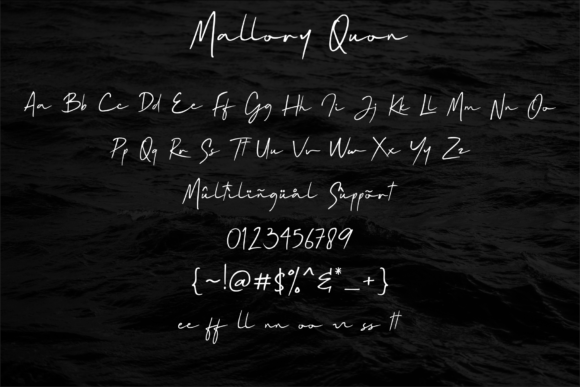 Mallory Quon
Aa Bb Cc Dd Ee Ff Gg Hh Ii Jj Kk Ll Mm Nn Oo
Pp Qq Rr Ss Tt Uu Vv Ww Xx Yy Zz
Mûltilïñgüål Sùppõrt
0123456789
{~!@#$%^&*_+}
ee ff ll nn oo rr ss tt